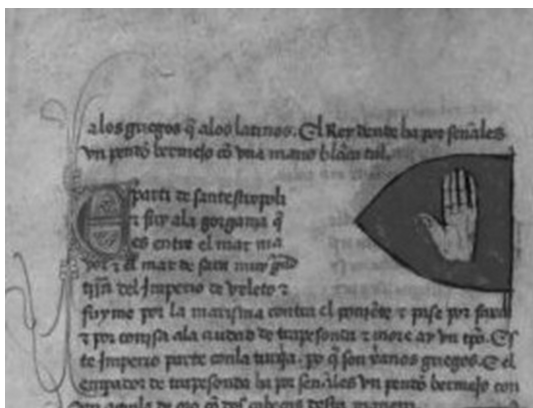 alos griegos q̃ alos latinos. El Rey dende ha por señales
vn pendõ bermejo cõ vna mano blãca tal.
E parti de santestropoli
⁊ fuy ala gorgania q̃
es entre el mar ma
yor ⁊ el mar de sara muy grãd
trr̃a del Jmperio de vxleto ⁊
fuyme por la marisma contra el poniẽte ⁊ pase por
⁊ por ala çiudad de trapesonda ⁊ more ay vn tpõ. Es
te Jmperio parte conla turq̃a. po q̃ son griegos. E el
enpador de trapesonda ha por señales vn pendõ bermejo con
vn aguila de oro cõ dos cabeças desta manera